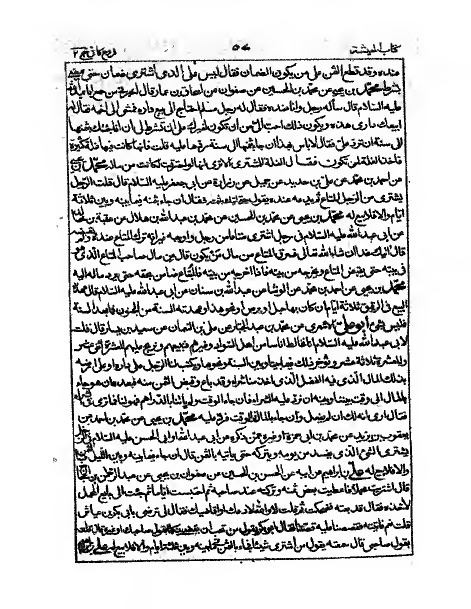 كتاب المعيشة
عنده وقد قطع الثمن على من يكون الضمان فقال ليس على الذي اشترى ضمان حتى
محمد بن يحيى عن محمد بن الحسين عن صفوان عن اسحاق بن عمار قال
عليه السلام قال سأله رجل وانا عنده فقال له رجل مسلم احتاج الى بيع داره فمشى الى اخيه فقال له
ابيعك داري هذه ويكون ذلك احب الى من ان تكون لغيرك على ان تشترط لي ان انا جئتك بثمنها
الى سنة ان ترد على فقال لا باس بهذا ان جاء بثمنها الى سنة ردها عليه قلت فانها كانت فيها غلة كثيرة
فاخذ الغلة لمن تكون فقال الغلة للمشتري الا ترى انها لو احترقت لكانت من ماله محمد بن يحيى
عن احمد بن محمد عن علي بن حديد عن جميل عن زرارة عن ابي جعفر عليه السلام قال قلت الرجل
يشتري من الرجل المتاع ثم يدعه عنده يقول حتى اتيك بثمنه فقال ان جاء بثمنه فيما بينه وبين ثلاثة
ايام والا فلا بيع له محمد بن يحيى عن محمد بن الحسين عن محمد بن عبدالله بن هلال عن عقبة بن خالد
عن ابي عبد الله عليه السلام في رجل اشترى متاعا من رجل واوجبه غير انه ترك المتاع عنده
قال اتيك غدا ان شاء الله فقال فسرق المتاع من مال من يكون قال من مال صاحب المتاع الذي
في بيته حتى يقبض المتاع ويخرجه من بيته فاذا اخرجه من بيته فالمبتاع ضامن لحقه حتى يرد ماله اليه
محمد بن يحيى عن احمد بن محمد عن الوشا عن عبدالله بن سنان عن ابي عبد الله عليه السلام قال
فليس بشئ ابو علي الاشعري عن محمد بن عبدالجبار عن علي بن النعمان عن سعيد بن يسار قال قلت
لابي عبد الله عليه السلام انا نخالط اناسا من اهل السواد وغيرهم فنبيعهم ونربح عليهم للعشرة اثنى عشر
والعشرة ثلاثة عشر ونؤخر ذلك فيما بيننا وبين السنة ونحوها ويكتب لنا الرجل على داره او على ارضه
بذلك المال الذي فيه الفضل الذي اخذ منا شراء وقد باع وقبض الثمن منه فنعده ان هو جاء
بالمال الى وقت بيننا وبينه ان نرد عليه الشراء فان جاء الوقت ولم ياتنا بالدراهم فهو لنا فما ترى في
فقال ارى انه لك ان لم يفعل وان جاء بالمال للوقت فرد عليه محمد بن يحيى عن محمد بن احمد عن
يعقوب بن يزيد عن محمد بن ابي حمزة او غيره عمن ذكره عن ابي عبدالله او ابي الحسن عليه السلام
يشتري الشئ الذي يفسد من يومه ويتركه حتى ياتيه بالثمن قال ان جاء فيما بينه وبين الليل بالثمن
والا فلا بيع له علي بن ابراهيم عن ابيه
قال اشتريت محملا فاعطيت بعض ثمنه وتركته عند صاحبه ثم احتبست اياما ثم جئت الى بايع المحمل
لاخذه فقال قد بعته فضحكت ثم قلت لا والله لا ادعك او اقاضيك فقال لي ترضى بابي بكر بن عياش
قلت نعم فاتيته فقصصنا عليه قصتنا فقال ابو بكر بقول من تحب ان اقضي بينكما بقول صاحبك او غيره قال قلت
بقول صاحبي قال سمعته يقول من اشترى شيئا فجاء بالثمن فيما بينه وبين ثلاثة ايام والا فلا بيع له